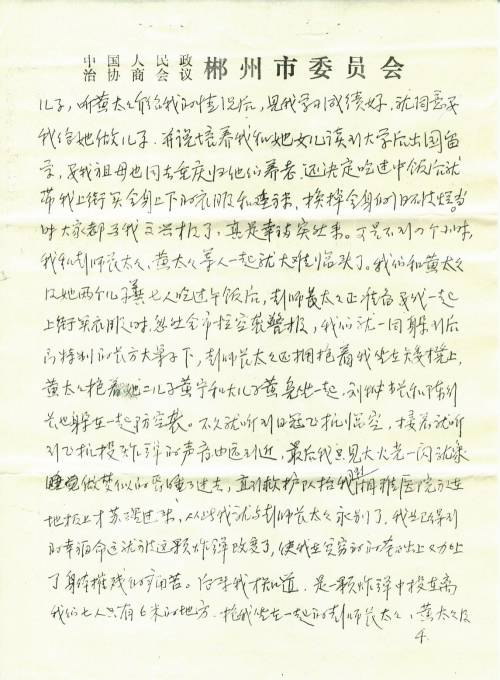 中国人民政治协商会议 郴州市委员会
儿子，听黄太太介绍我的情况后，见我学习成绩好，就同意要
我给她做儿子。并说培养我和她女儿读到大学后出国留
学，要我祖母也同去重庆归他们养老，还决定吃过中饭后就
带我上街买全身上下的衣服和 ，换掉全身的旧衣 。当
时大家都 我 高兴极了，真是幸福 。可是不到 个小时，
我和彭师长太太、黄太太 人一起就大难临头了。我们和黄太太
及她两个儿子 七人吃过午饭后，彭师长太太正准备要我一起
上街买衣服时，忽然全市拉空袭警报，我们就一同躲到后
 的长方大桌子下，彭师长太太还拥抱着我坐在 凳上，
黄太太抱着她二儿子黄宁和大儿子黄 坐一起，刘 长和陈
长也躲在一起防空袭。不久就听到日寇飞机临空，接着就听
到飞机投炸弹的声音由远到近，最后我只见大火光一闪就象
睡觉做梦似的昏睡了过去，直到救护队抬我到湘雅医院 
地板上才苏醒过来，从此我就与彭师长太太永别了，我 得到
的幸福命运就被这颗炸弹改变了，使我在贫穷的 上又加上
了身体摧残的痛苦。后来我才知道，是一颗炸弹中投在离
我们七人只有6米的地方，抱我坐在一起的彭师长太太、黄太太及
4.